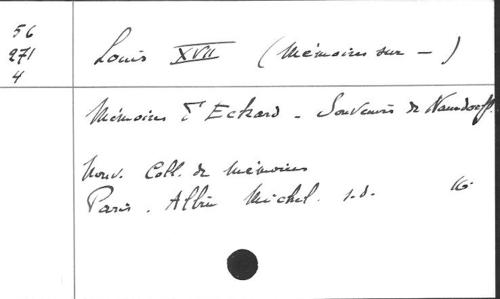 56
271
4
Louis XVII (Mémoires sur —)
Mémoires d'Eckard - Souvenirs de Naundorff.
Nouv. Coll. de Mémoires
Paris. Albin Michel. s.d. 16°